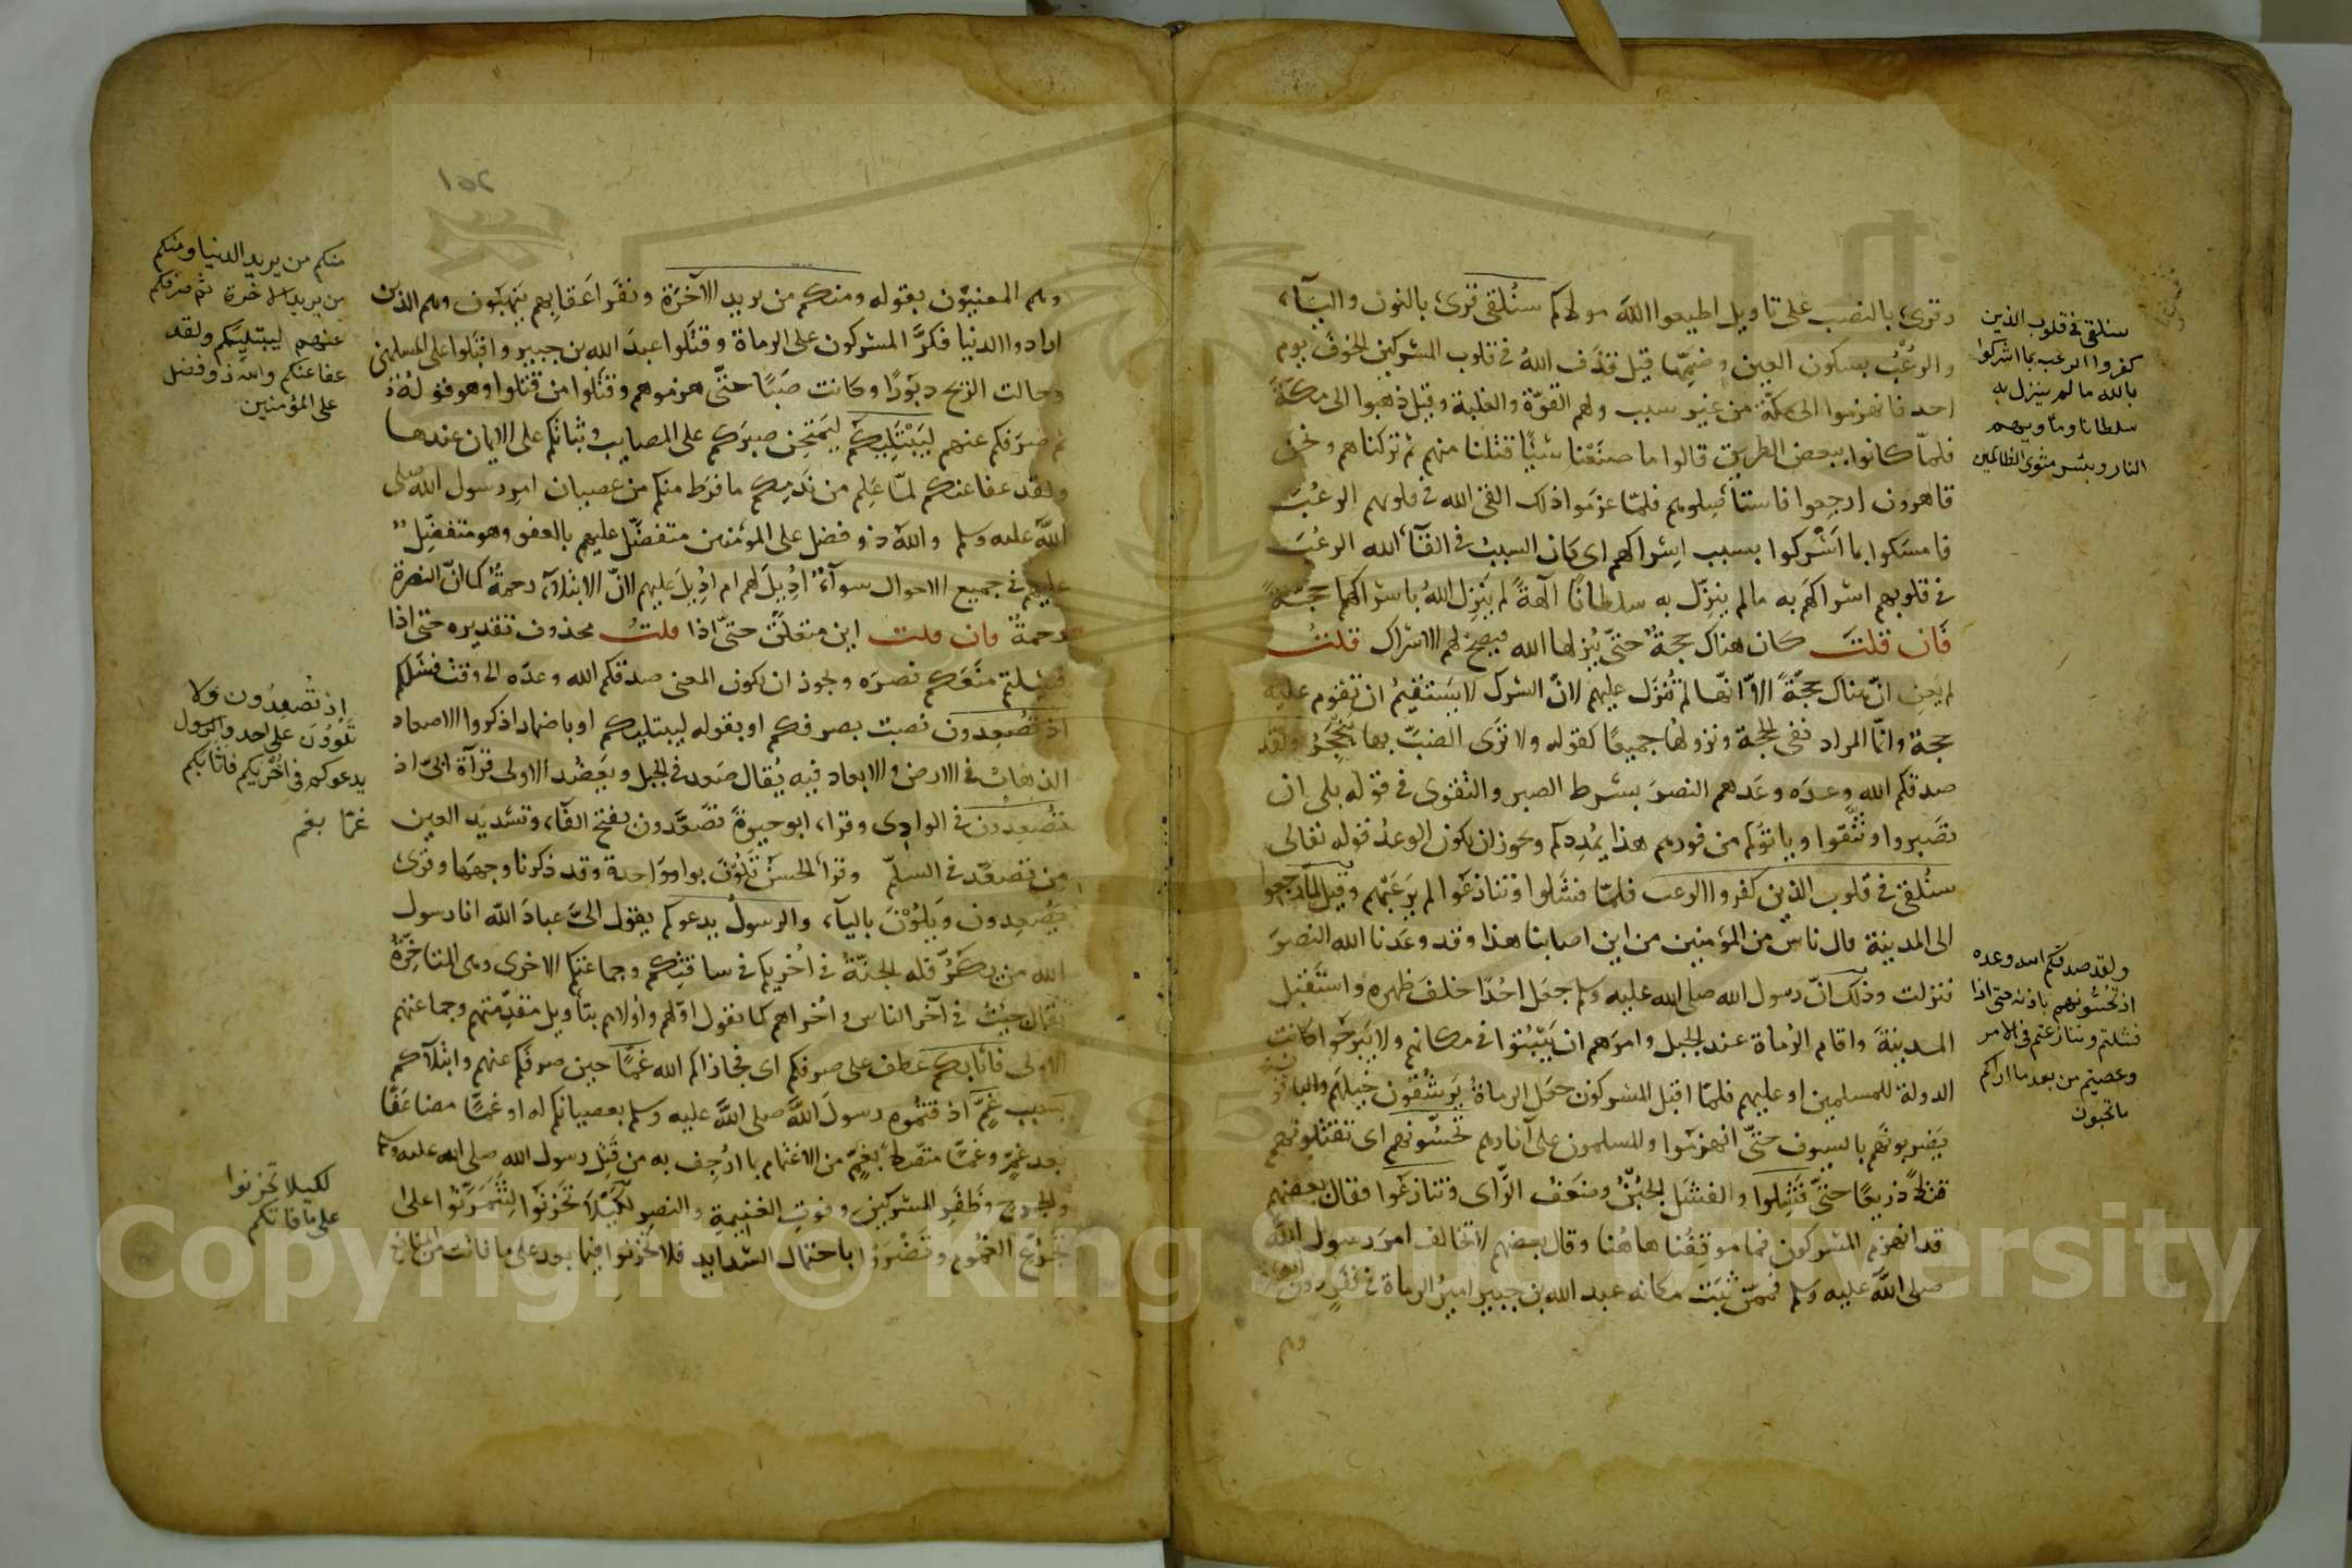 وقرئ بالنصب على تاويل اطيعوا الله مولاكم سنُلقى قرئ بالنون واليآء
والرُعُب بسكون العين وضمّها قيل قذف اللهُ فى قلوب المشركين الخوفَ يوم
احد فانهزموا الى مكّة من غير سبب ولهم القوّة والغلبة وقيل ذهبوا الى مكة
فلمّا كانوا ببعض الطريق قالوا ما صنَعْنا شيًا قتلنا منهم ثم تركناهم ونحن
قاهرون ارجِعوا فاستأصِلوهم فلمّا عزموا ذلك القى الله فى قلوبهم الرعُبَ
فامسكوا بما اَشْركوا بسبب اِشراكهم اى كان السببُ فى القآء الله الرعُبَ
فى قلوبهم اشراكَهم به ما لم ينزّل به سلطانًا آلهةً لم يُنَزِل اللهُ باشراكها حجّةً
فَان قلتَ كان هناك حجةٌ حتّى يُنزلها الله فيصح لهم الاشراك قلتُ
لم يَعنِ انّ هناك حجّةً الاّ انّها لم تُنزَل عليهم لانّ الشرك لا يستقيمُ ان تقوم عليه
حجة وانّما المراد نفى الحجة ونزولها جميعًا كقوله ولا تَرى الضبَّ بها يَنْجَحِرُ ولقد
صدقكم الله وعدَه وعَدهم النصرَ بشرط الصبر والتقوى فى قوله بلى ان
تصَبروا وتتّقوا وياتوكم من فورهم هذا يُمْدِدكم ويجوز ان يكون الوعدُ قوله تعالى
سنُلقى فى قلوب الذين كفروا الرعب فلمّا فشلوا وتنازعَوا لم يرَعبَهم وقيل لمّا رجعوا
الى المدينة قال ناسٌ من المؤمنين من اين اصابنا هذا وقد وعَدنا الله النصرَ
فنزلت وذلك انّ رسول الله صلى الله عليه وسلم جعَل احُدًا خلفَ ظهره واستَقبل
المدينةَ واقام الرُماةَ عند الجبل وامرَهم ان يَثْبُتوا فى مكانهم ولا يَبْرَحَوا كانت
الدولة للمسلمين او عليهم فلمّا اقبل المشركون جعَل الرماةُ يَرشُقون خَيلَهم والباقون
يَضربونَهم بالسيوف حتّى انهزَموا والمسلمون على آثارهم تحَسّونهم اى تقتلونهم
قتلاً ذريعًا حتّى فَشِلوا والفشَل الجُبْنُ وضعَفُ الرّاى وتنازعَوا فقال بعضهم
قد انهزم المشركون فما موقفِنُا هاهُنا وقال بعضهم لا تخالف امرَ رسول الله
صلى اللّه عليه وسلم فممّن ثبَت مكانه عبد الله بن جبير اميرُ الرماة فى نفَرٍ دون العشرة
وهم
سنلقى فى قلوب الذين
كفروا الرعب بما اشركوا
بالله ما لم ينزل به
سلطانا وماويهم
النار وبئس مثوى الظالمين
ولقد صدقكم الله وعده
اذ تحسونهم باذنه حتى اذا
فشلتم وتنازعتم فى الامر
وعصيتم من بعد ما اراكم
ما تحبون
وهم المعنيّون بقوله ومنكم من يريد الآخرَة ونفَر اَعَقابهم يَنهبَون وهم الذين
ارادوا الدنيا فكرَّ المشركون على الرماة وقتَلوا عبدَ الله بن جبير واقبَلوا على المسلمين
وحالت الريح دبَورًا وكانت صَبًا حتّى هزموهم وقتَلوا من قتلوا وهو قولهُ
ثم صرَفكم عنهم ليَبْتَلِيكم ليَمتحِن صبرَكم على المصايب وثباتَكم على الايمان عندها
ولقد عفا عنكم لمّا عَلِم من ندمِكم ما فرَط منكم من عصيان امرِ رسول الله صلى
اللّه عليه وسلم واللّه ذو فضل على المؤمنين متفضّل عليهم بالعفو وهو متفضِّلٌ
عليهم فى جميع الاحوال سوآءٌ اُدِيلَ لهم ام اُدِيلَ عليهم لانّ الابتلآء رحمةٌ كما انّ النصرة
رحمةٌ فان قلت اين متعلَّق حتّى اذا قلتُ محذوف تقديره حتى اذا
فشِلتم منَعَكم نصرَه ويجوز ان يكون المعنى صدقكم الله وعدَه الى وقت فشلكم
اذ تُصْعِدون نصبَ بصرفكم او بقوله ليبتليكم او باضمار اذكروا الاصعاد
الذهابُ فى الارض والابعاد فيه يُقال صَعِد فى الجبل ويَعضُد الاولى قرآة ابىّ اذ
تصُعدِون فى الوادِى وقرا، ابو حيوةَ تَصَعَّدون بفتح التآء وتشديد العين
مِن تصعَّد فى السلّم وقرأ الحسَنُ تَلُوُن بواو واحدة وقد ذكرنا وجهَها وقرئ
يصُعدِون ويَلوُنْ باليآء والرسولُ يدعوكم يقول الىَّ عبادَ اللّه انا رسول
الله من يكُرَّ فله الجنّةُ فى اُخريكم فى ساقتكم وجماعتكم الاخرى وهى المتاخّرةُ
يقال جئتُ فى آخر الناس واُخراهم كما تقول اوّلهم واُولاهم بتأويل مقدّمتهم وجماعتهم
الاولى فاثابكم عطف على صرفكم اى فجازاكم الله غمًّا حين صرفكم عنهم وابتلآكم
بسبب غمٍّ اذقتموه رسولَ اللَّه صلى اللَّه عليه وسلم بعصيانكم له او غمًّا مضاعَفًا
بعد غمٍّ وغمًّا متصّلاً بغمٍّ من الاغتمام بما اُرجِف به من قَتِل رسول الله صلى الله عليه وسلم
والجروح وظَفرِ المشركين وفوتِ الغنيمةِ والنصر لكَيْلا تحَزنَوا لتَتمَرنّوا على
تجَرّع الغمُوم وتضَْرَوا باحتمال الشدايد فلا تحزنوا فيما بعد على ما فات من المنافع
منكم من يريد الدنيا ومنكم
من يريد الاخرة ثم صرفكم
عنهم ليبتليكم ولقد
عفا عنكم والله ذو فضل
على المؤمنين
إذ تُصْعِدُون وَلا
تَلوُوُنَ على احد والرسول
يدعوكم فى اخُريكم فاثابكم
غمًا بغم
لكيلا تحزنوا
على ما فاتكم
Copyright © King Saud University
1957